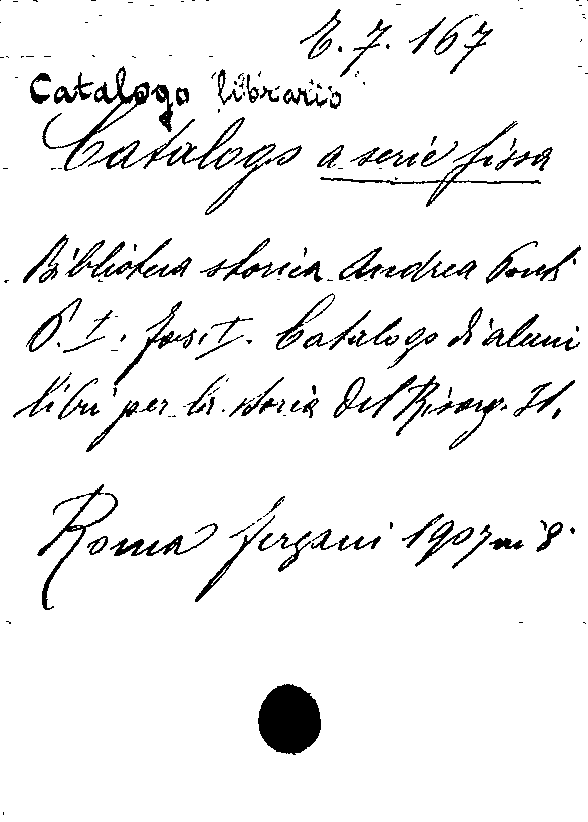 E.7.167
Catalogo librario
Catalogo a serie fissa
Biblioteca storica Andrea Ponti
P. I. Fas. I. Catalogo di alcuni
libri per la storia del Risorg. It.
Roma Forzani 1907 in 8°